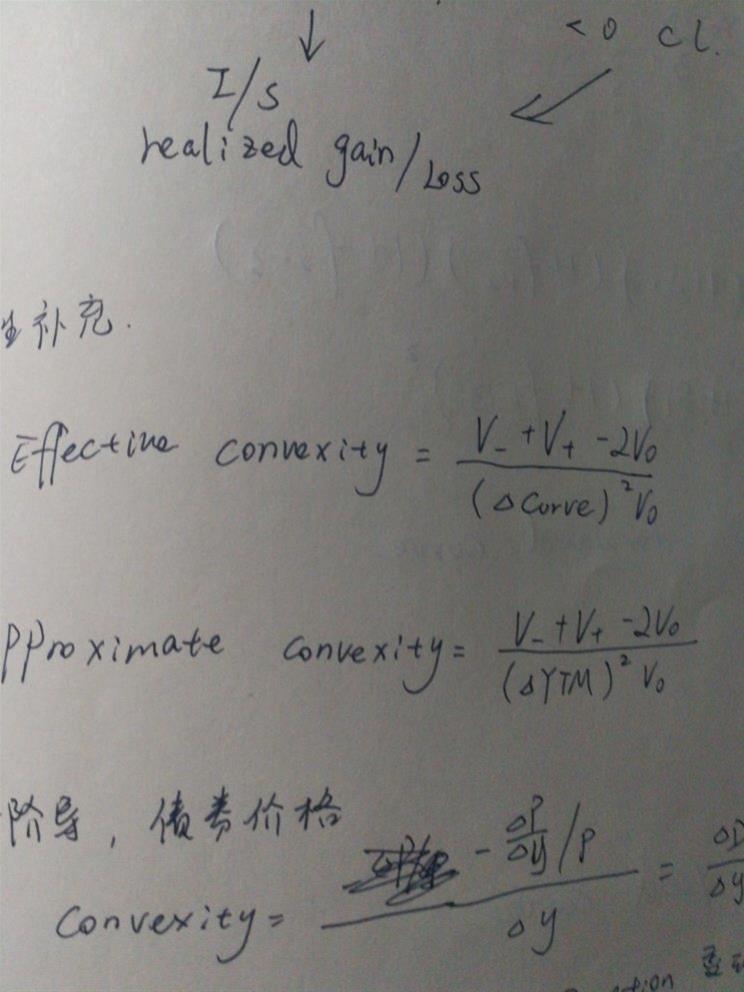 <0 CL.
I/S
realized gain/Loss
补充.
Effective convexity = (V₋ + V₊ - 2V₀) / ((ΔCurve)² V₀)
pproximate convexity = (V₋ + V₊ - 2V₀) / ((ΔYTM)² V₀)
阶导, 债券价格
Convexity = (- ΔP/Δy /P) / Δy = ΔD/Δy